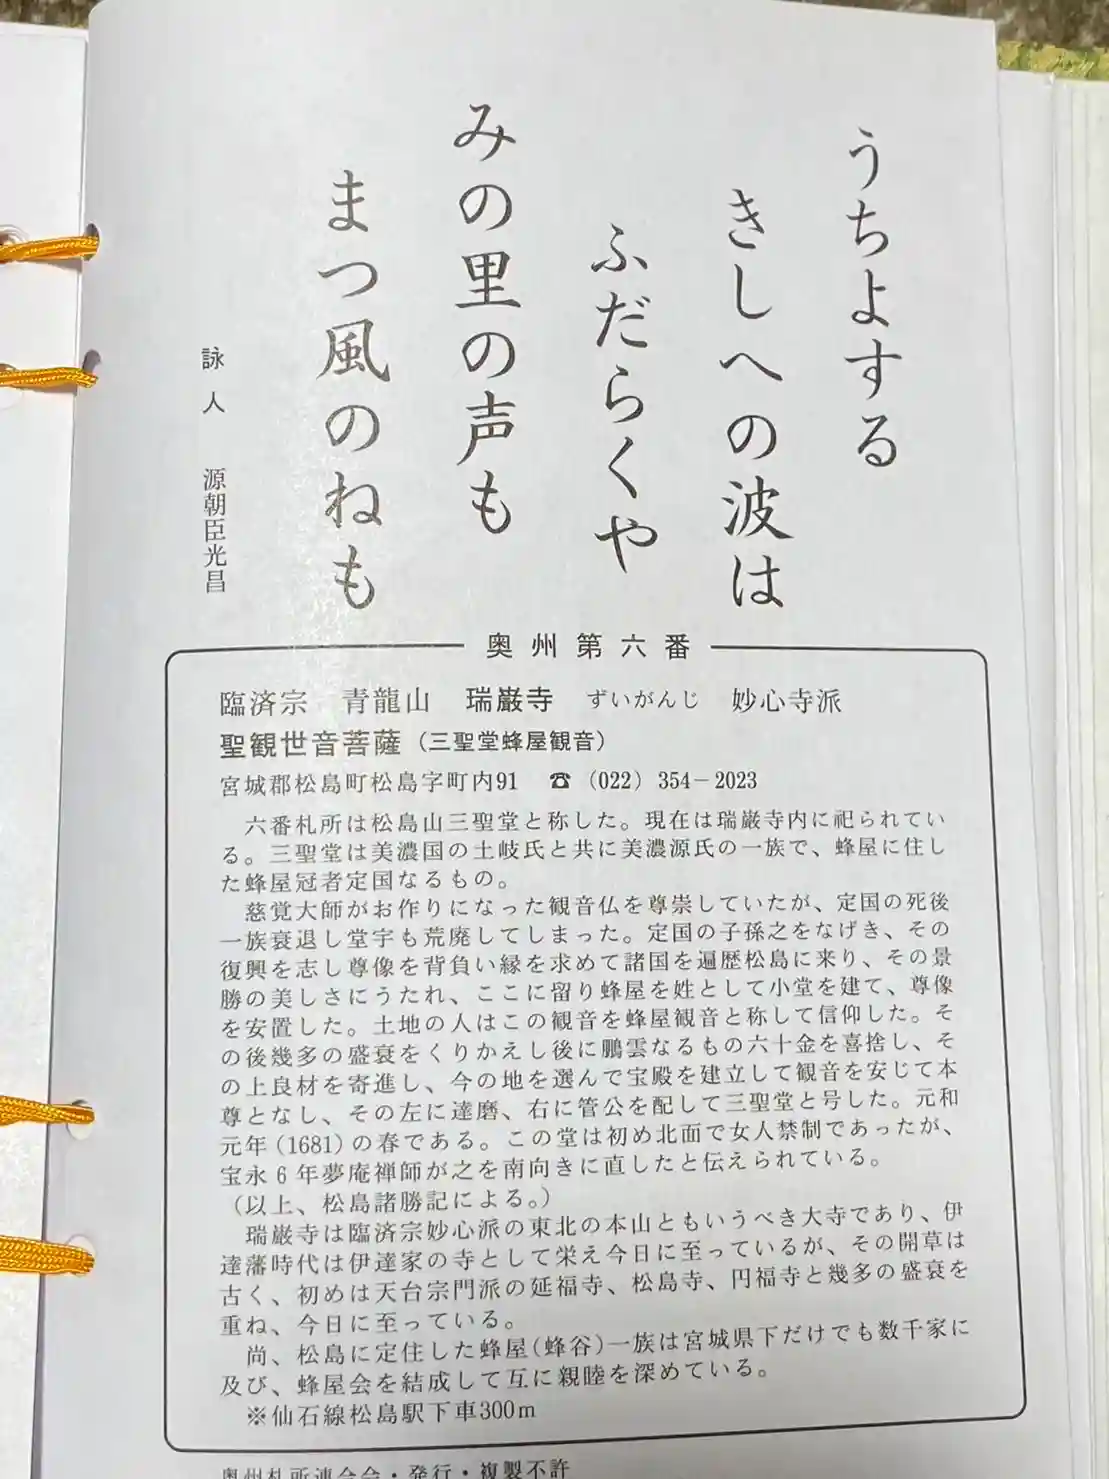 うちよする
きしへの波は
ふだらくや
みの里の声も
まつ風のねも
詠人 源朝臣光昌
奥州第六番
臨済宗 青龍山 瑞巌寺 ずいがんじ 妙心寺派
聖観世音菩薩（三聖堂蜂屋観音）
宮城郡松島町松島字町内91 ☎（022）354－2023
六番札所は松島山三聖堂と称した。現在は瑞巌寺内に祀られてい
る。三聖堂は美濃国の土岐氏と共に美濃源氏の一族で、蜂屋に住し
た蜂屋冠者定国なるもの。
慈覚大師がお作りになった観音仏を尊崇していたが、定国の死後
一族衰退し堂宇も荒廃してしまった。定国の子孫之をなげき、その
復興を志し尊像を背負い縁を求めて諸国を遍歴松島に来り、その景
勝の美しさにうたれ、ここに留り蜂屋を姓として小堂を建て、尊像
を安置した。土地の人はこの観音を蜂屋観音と称して信仰した。そ
の後幾多の盛衰をくりかえし後に鵬雲なるもの六十金を喜捨し、そ
の上良材を寄進し、今の地を選んで宝殿を建立して観音を安じて本
尊となし、その左に達磨、右に管公を配して三聖堂と号した。元和
元年（1681）の春である。この堂は初め北面で女人禁制であったが、
宝永６年夢庵禅師が之を南向きに直したと伝えられている。
（以上、松島諸勝記による。）
瑞巌寺は臨済宗妙心派の東北の本山ともいうべき大寺であり、伊
達藩時代は伊達家の寺として栄え今日に至っているが、その開草は
古く、初めは天台宗門派の延福寺、松島寺、円福寺と幾多の盛衰を
重ね、今日に至っている。
尚、松島に定住した蜂屋（蜂谷）一族は宮城県下だけでも数千家に
及び、蜂屋会を結成して互に親睦を深めている。
※仙石線松島駅下車300m
奥州札所連合会・発行・複製不許